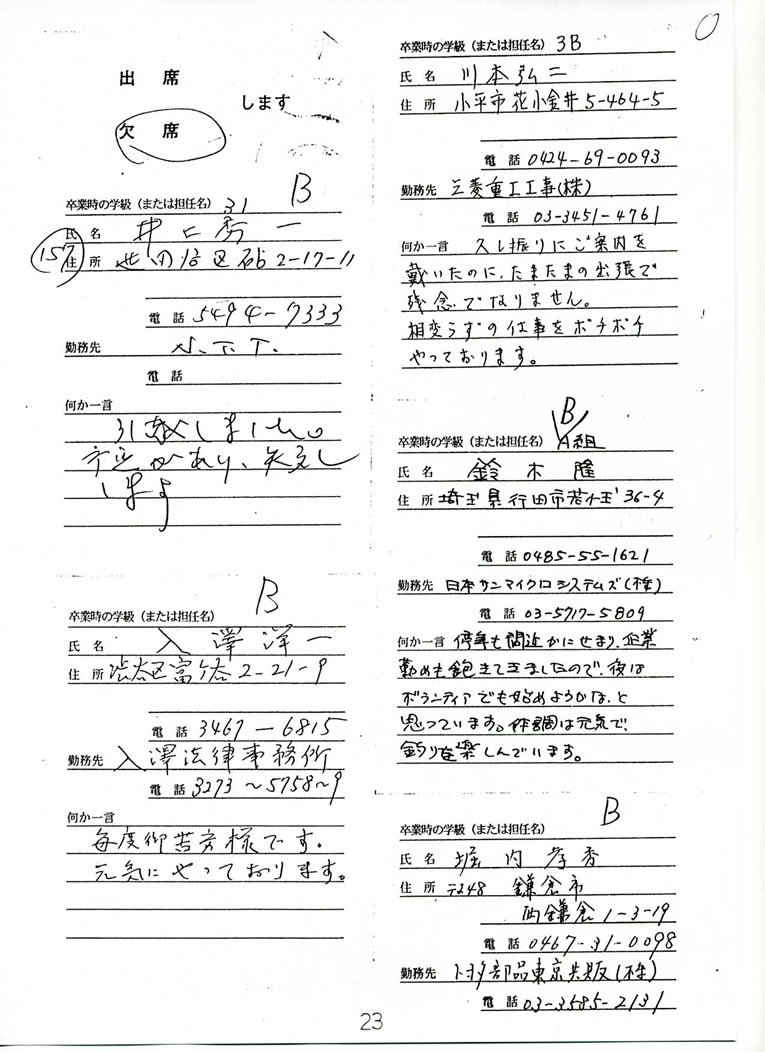 出席
します
欠席
B
卒業時の学級（または担任名） 31
氏名 井上 秀一
157
住所 世田谷区砧2-17-11
電話 5494-7333
勤務先 N.T.T.
電話
何か一言
引越しました。
予定があり、失礼し
します
B
卒業時の学級（または担任名）
氏名 入澤 洋一
住所 渋谷区富ヶ谷2-21-9
電話 3467-6815
勤務先 入澤法律事務所
電話 3273～5758～9
何か一言
毎度御苦労様です．
元気にやっております。
O
卒業時の学級（または担任名） 3B
氏名 川本弘二
住所 小平市花小金井5-464-5
電話 0424-69-0093
勤務先 三菱重工工事(株)
電話 03-3451-4761
何か一言 久し振りにご案内を
戴いたのに、たまたまの出張で
残念でなりません。
相変らずの仕事をボチボチ
やっております。
B
卒業時の学級（または担任名） A組
氏名 鈴木 隆
住所 埼玉県行田市若小玉36-4
電話 0485-55-1621
勤務先 日本サンマイクロシステムズ(株)
電話 03-5717-5809
何か一言 停年も間近かにせまり、企業
勤めも飽きてきましたので、後は
ボランティアでも始めようかな、と
思っています。体調は元気で、
釣りを楽しんでいます。
B
卒業時の学級（または担任名）
氏名 堀内孝香
住所 〒248 鎌倉市
西鎌倉1-3-19
電話 0467-31-0098
勤務先 トヨタ部品東京共販(株)
電話 03-3585-2131
23